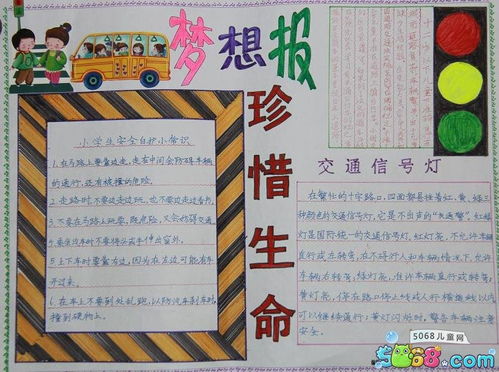 梦想报
珍惜生命
小学生安全自护小常识
1.在马路上要靠边走,走在中间会防碍车辆
的通行,还有被撞的危险。
2.走路时不要边走边玩,也不要边走边看书
3.不要在马路上玩耍,既危险,又会妨碍交通
4.乘坐汽车时不要将头或手伸出窗外。
5.上下车时要靠右边,因为在左边可能有车
开过来。
6.在车上不要到处乱跑,以防汽车刹车时
撞到硬物上。
交通信号灯
在繁忙的十字路口,四面都悬挂着红、黄、绿三
种颜色的交通信号灯,它是不出声的“交通警”。红绿
灯是国际统一的交通信号灯。红灯亮,不允许车辆
直行或左转弯,在不碍行人和车辆情况下,允许
车辆右转弯;绿灯亮,准许车辆直行或转弯;
黄灯亮,停在路口停止线或人行横道线以内
可以继续通行;黄灯闪烁时,警告车辆注意
安全。
5068儿童网
5068.com